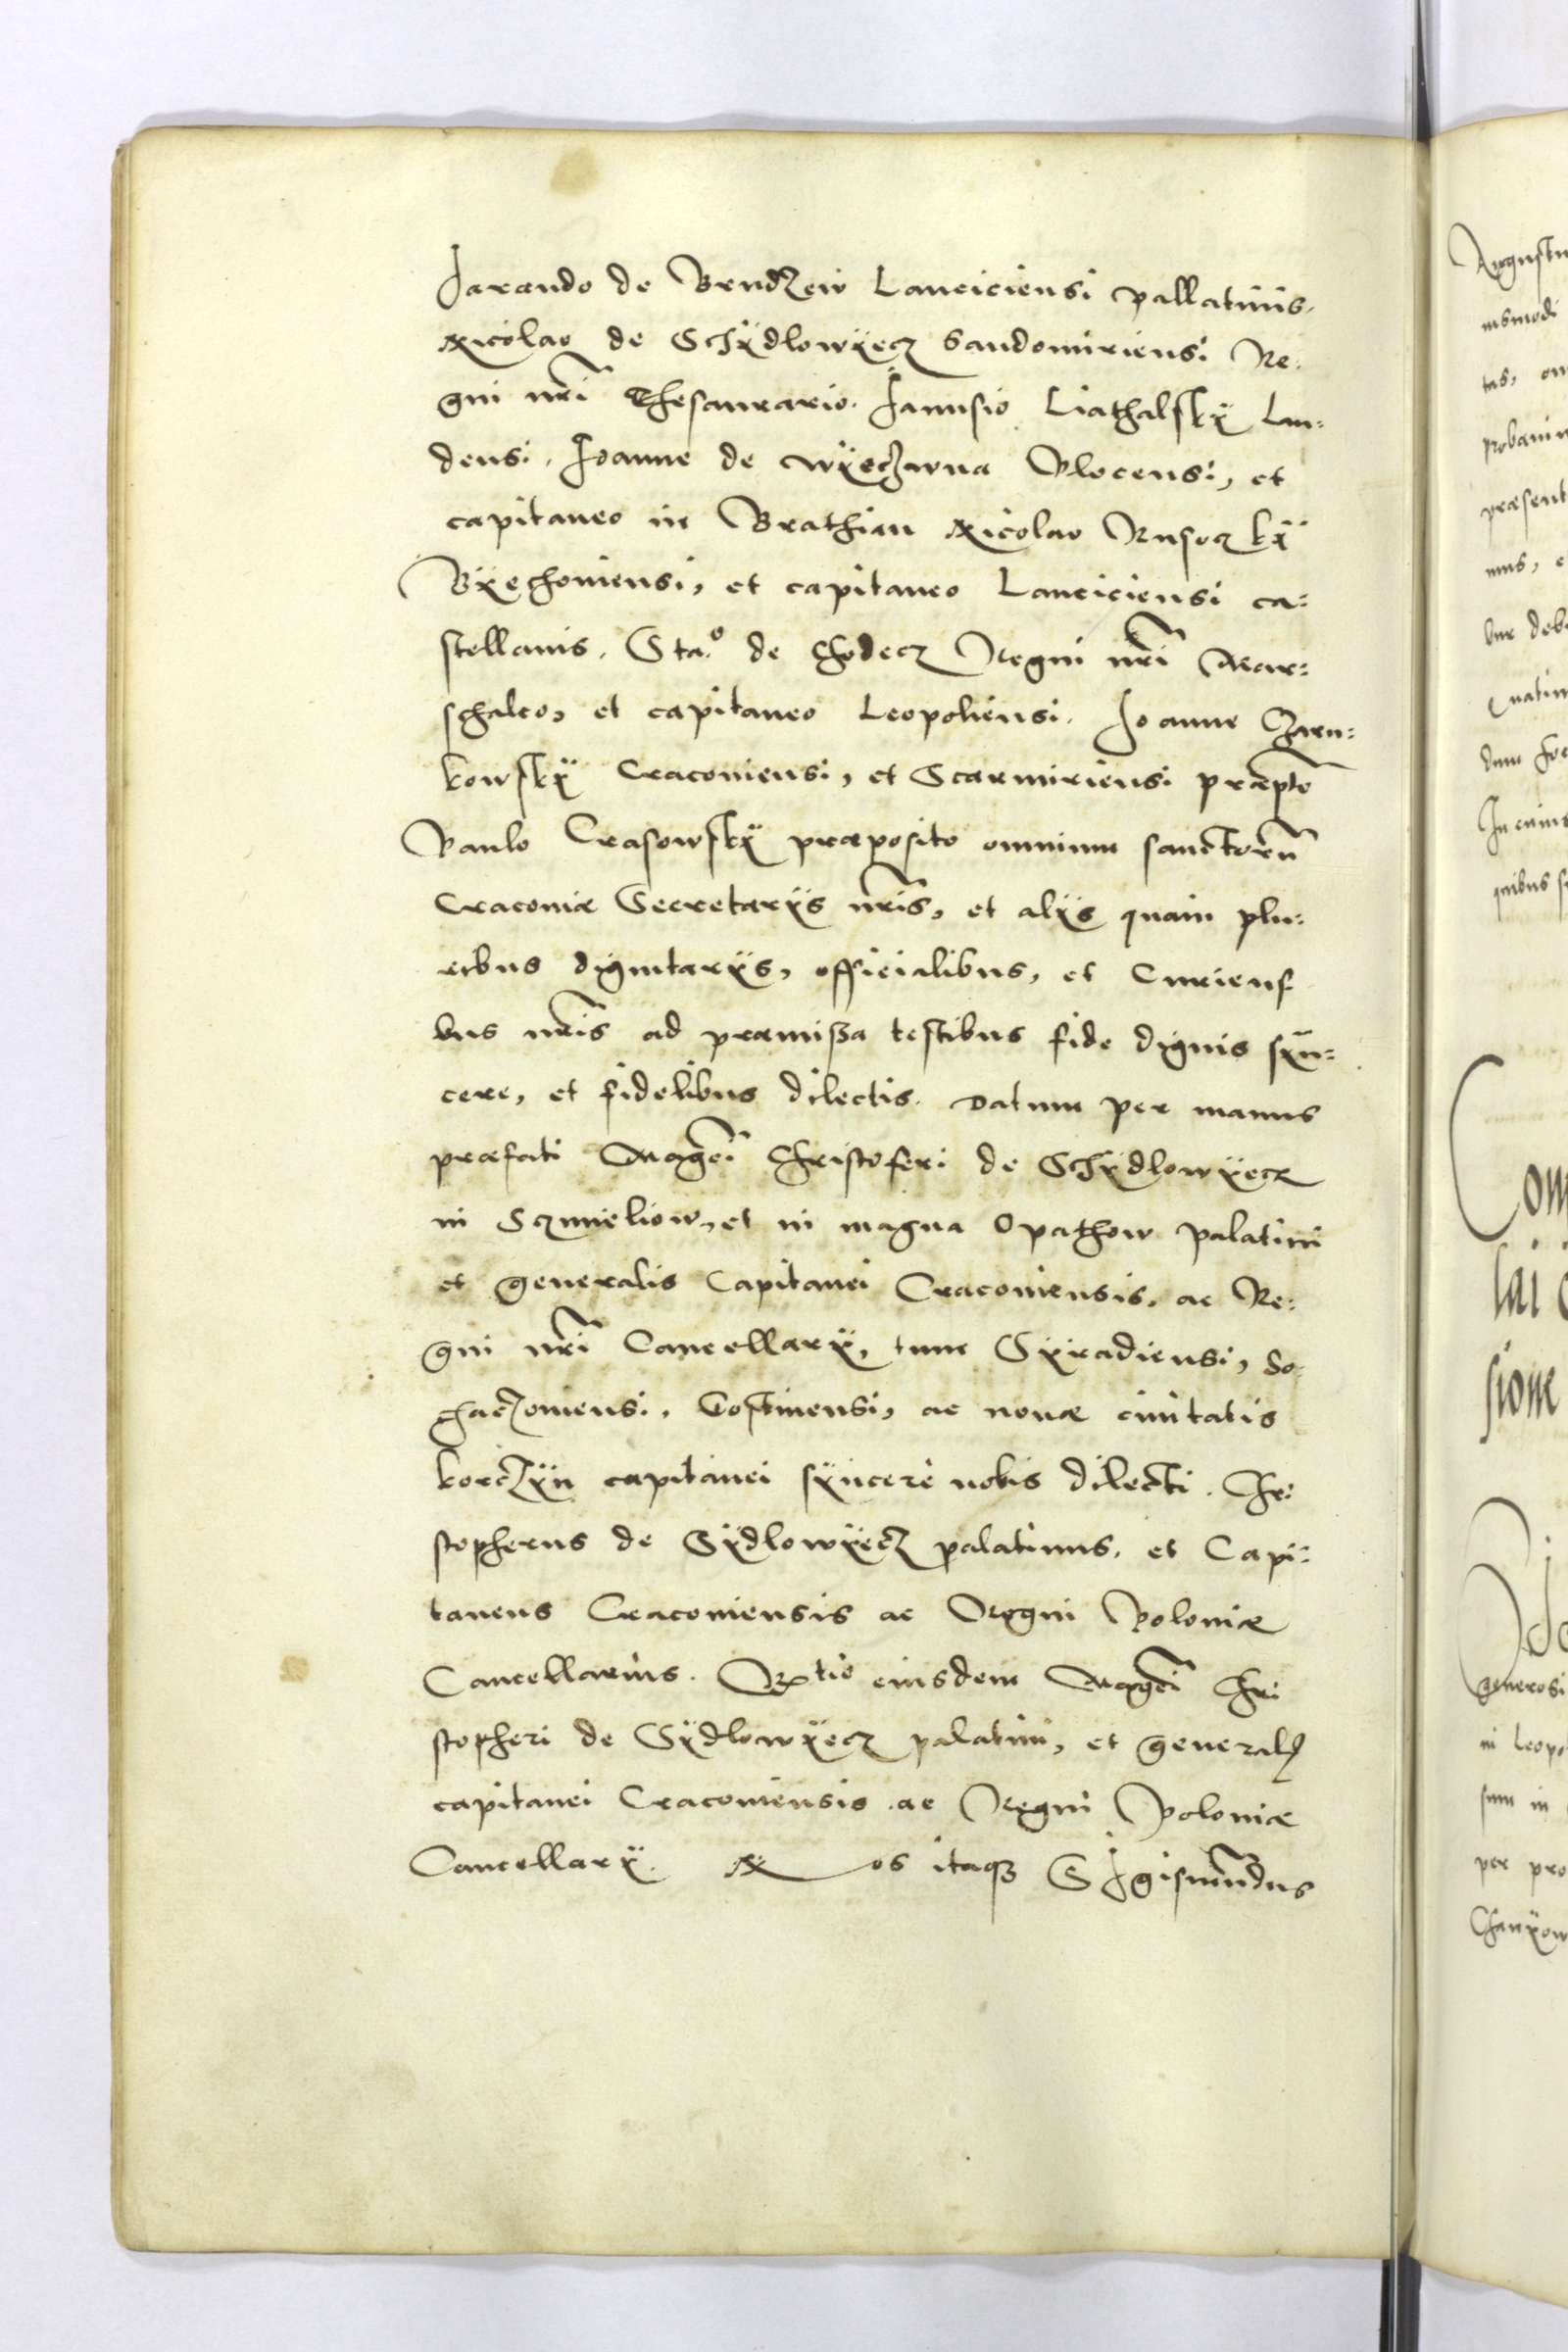 Jarando de Brudzew Lanciciensi pallatinis.
Nicolao de Schÿdlowÿecz Sandomiriensi Re:
gni nrĩ Thesaurario. Janusio Liathalskÿ Lan:
densi. Joanne de wÿeczwna Plocensi, et
capitaneo in Brathian Nicolao Rusoczkÿ
Bÿechoniensi, et capitaneo Lanciciensi ca:
stellanis. Sta.º de Chodecz Regni nrĩ Mar:
schalco, et capitaneo Leopoliensi. Joanne Czarn:
kowskÿ Cracoviensi, et Scarmiriensi præpto
Paulo Crasowskÿ præposito omnium sanctorũ
Cracoviæ Secretarÿs nrĩs, et alÿs quam plu:
ribus dignitarÿs, officialibus, et Curiens
bus nrĩs ad præmißa testibus fide dignis sÿn:
cere, et fidelibus dilectis. Datum per manus
præfati Magcĩ Christoferi de Schÿdlowÿecz
in Sczmieliow, et in magna Opathow palatini
et generalis Capitanei Cracoviensis, ac Re:
gni nrĩ Cancellarÿ, tum Sÿradiensi, So:
chaczoviensi, Costinensi, ac novæ civitatis
korczÿn capitanei sÿncerè nobis dilecti. Chri
stopherus de Sÿdlowÿecz palatinus, et Capi:
taneus Cracoviensis ac Regni Poloniæ
Cancellarius. Rtio eiusdem Magcĩ Chri
stopheri de Sÿdlowÿecz palatini, et general
capitanei Cracoviensis ac Regni Poloniæ
Cancellarÿ. Nos itaqз Sigismũndus
Augustu
ius modi
tas, om
probavim
præsent
mus, e
bur deb
Quatin
dum
In cuius
quibus s
Com
lai
sione
generosi
in Leopo
sum in
per pro
Chanÿow